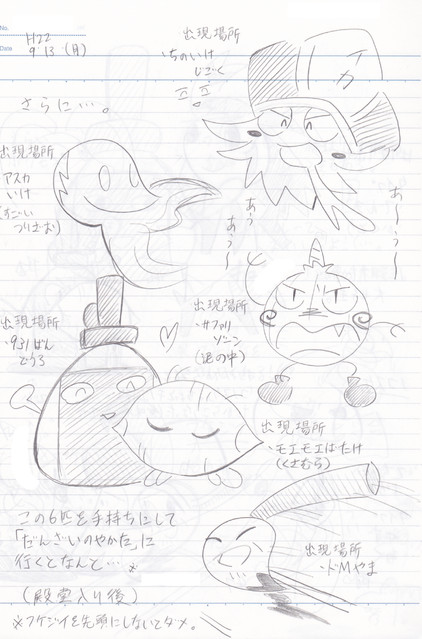 No.
Date
H22
9 13 (月)
出現場所
・ちのいけ
じごく
さらに…。
イカ
出現場所
・アスカ
いけ
(すごい
つりざお)
あ〜う〜
あぅ
あぅ〜
出現場所
・931ばん
どうろ
出現場所
・サファリ
ゾーン
(泥の中)
出現場所
・モエモエはたけ
(くさむら)
この6匹を手持ちにして
「だんざいのやかた」に
行くとなんと…※
出現場所
・ドMやま
(殿堂入り後)
※フケジイを先頭にしないとダメ。